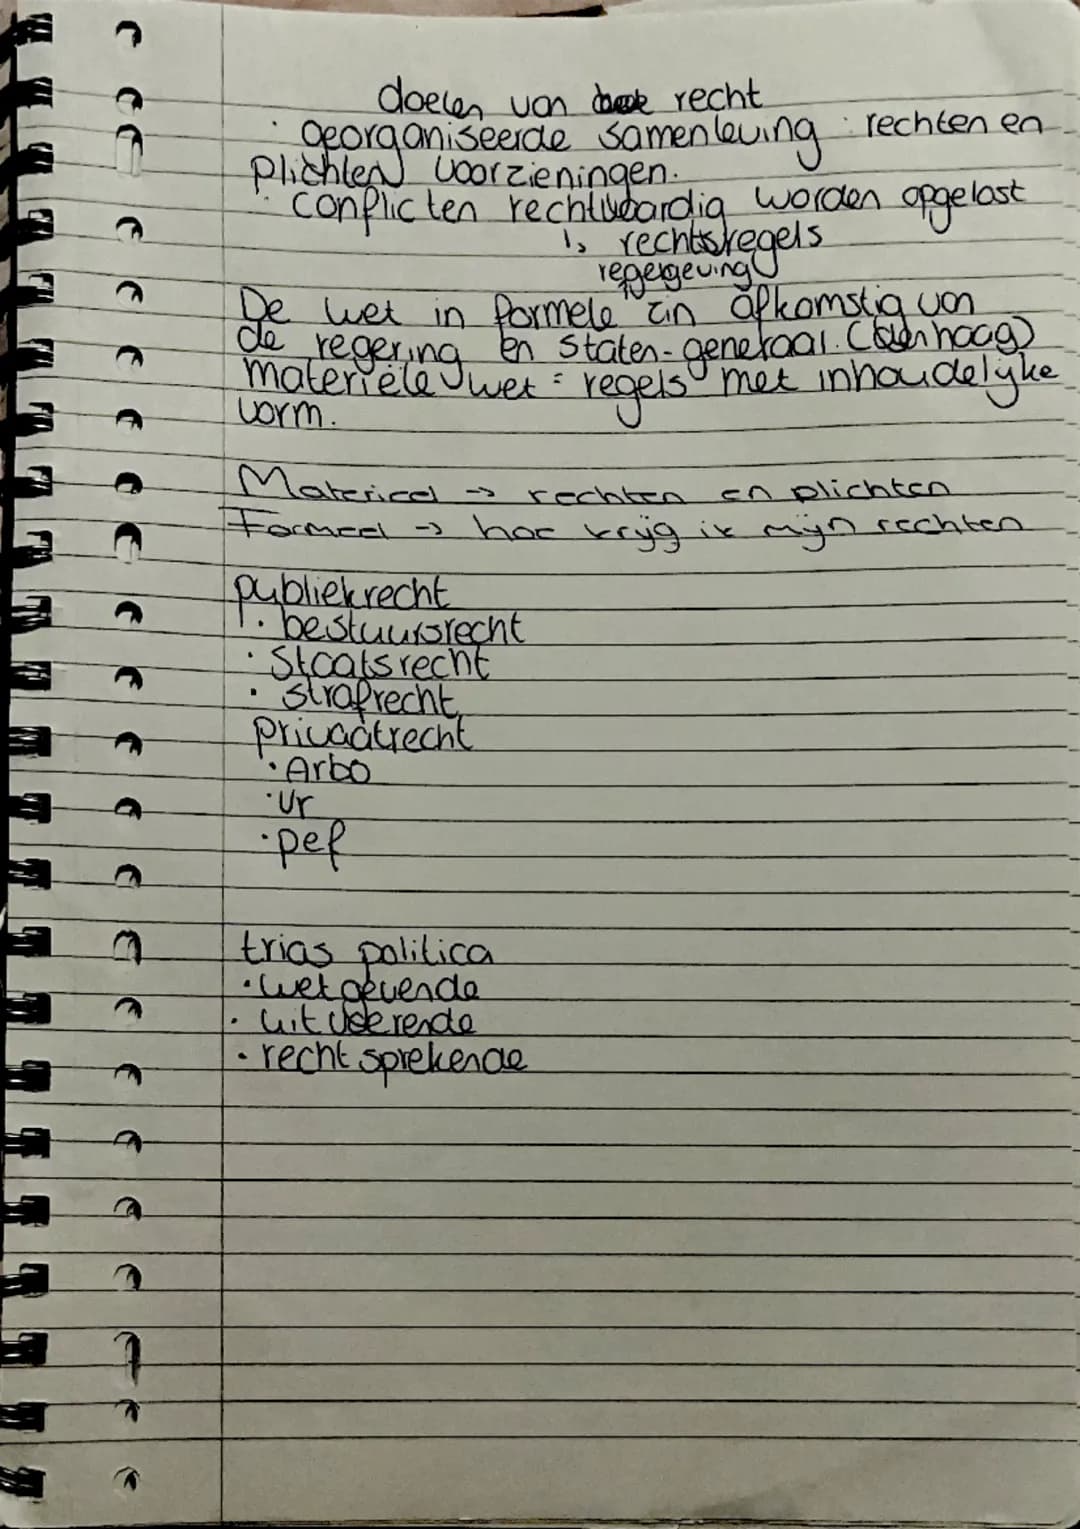 doelen van recht
· georganiseerde samenleving : rechten en
plichten voorzieningen.
· conflicten rechtvaardig worden opgelost
↳ rechtsregels
regelgeving
De wet in formele zin afkomstig van
de regering en Staten-generaal. (den haag)
materiële wet = regels met inhoudelijke
vorm.
Materieel → rechten en plichten
Formeel → hoe krijg ik mijn rechten
publiekrecht
1. bestuursrecht
· Staatsrecht
· strafrecht
privaatrecht
· Arbo
· vr
· pef
trias politica
· wetgevende
· uitvoerende
· recht sprekende